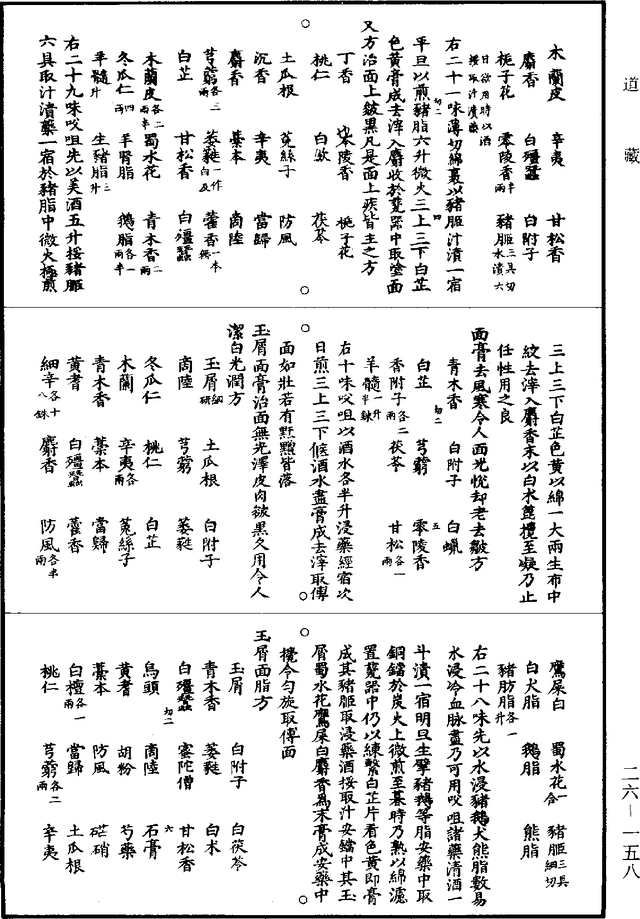 道藏
木蘭皮 辛夷 甘松香
麝香 白殭蠶 白附子
梔子花 零陵香兩半 豬胵三具切水漬六
日欲用時以酒挼取汁漬藥
右二十一味薄切綿裹以豬胵汁漬一宿
平旦以煎豬脂六升微火三上三下白芷
色黃膏成去滓入麝收於甆器中取塗面
又方治面上皺黑凡是面上疾皆主之方
丁香 零陵香 梔子花
桃仁 白蘞 茯苓
土瓜根 菟絲子 防風
沉香 辛夷 當歸
麝香 藁本 商陸
芎藭各三兩 萎蕤一作白及 藿香一本無
白芷 甘松香 白殭蠶
木蘭皮各二兩半 蜀水花 青木香二兩
冬瓜仁四兩 羊腎脂 鵝脂各一兩半
羊髓升 生豬脂三升
右二十九味㕮咀先以美酒五升挼豬胵
六具取汁漬藥一宿於豬脂中微火極煎
三上三下白芷色黃以綿一大兩生布中
絞去滓入麝香末以白木篦攪至凝乃止
任性用之良
面膏去風寒令人面光悅却老去皺方
青木香 白附子 白蠟
白芷 芎藭 零陵香
香附子各二兩 茯苓 甘松各一兩
羊髓一升半鍊
右十味㕮咀以酒水各半升浸藥經宿次
日煎三上三下候酒水盡膏成去滓取傅
面如壯若有𪒠䵳皆落
玉屑面膏治面無光澤皮肉皴黑久用令人
潔白光潤方
玉屑細研 土瓜根 白附子
商陸 芎藭 萎蕤
冬瓜仁 桃仁 白芷
木蘭 辛夷各兩 菟絲子
青木香 藁本 當歸
黃耆 白殭蠶 藿香
細辛各十八銖 麝香 防風各半兩
鷹屎白 蜀水花一合 豬胵三具細切
白犬脂 鵝脂 熊脂
豬肪脂各一升
右二十八味先以水浸豬鵝犬熊脂數易
水浸冷血脉盡乃可用㕮咀諸藥清酒一
斗漬一宿明旦生擘豬鵝等脂安藥中取
銅鐺於炭火上微煎至暮時乃熟以綿濾
置甆器中仍以練繫白芷片看色黃即膏
成其豬胵取浸藥酒挼取汁安鐺中其玉
屑蜀水花鷹屎白麝香為末膏成安藥中
攪令勻旋取傅面
玉屑面脂方
玉屑 白附子 白茯苓
青木香 萎蕤 白朮
白殭蠶 蜜陀僧 甘松香
烏頭 商陸 石膏
黃耆 胡粉 芍藥
藁本 防風 芒硝
白檀各一兩 當歸 土瓜根
桃仁 芎藭各二兩 辛夷
二六—一五八